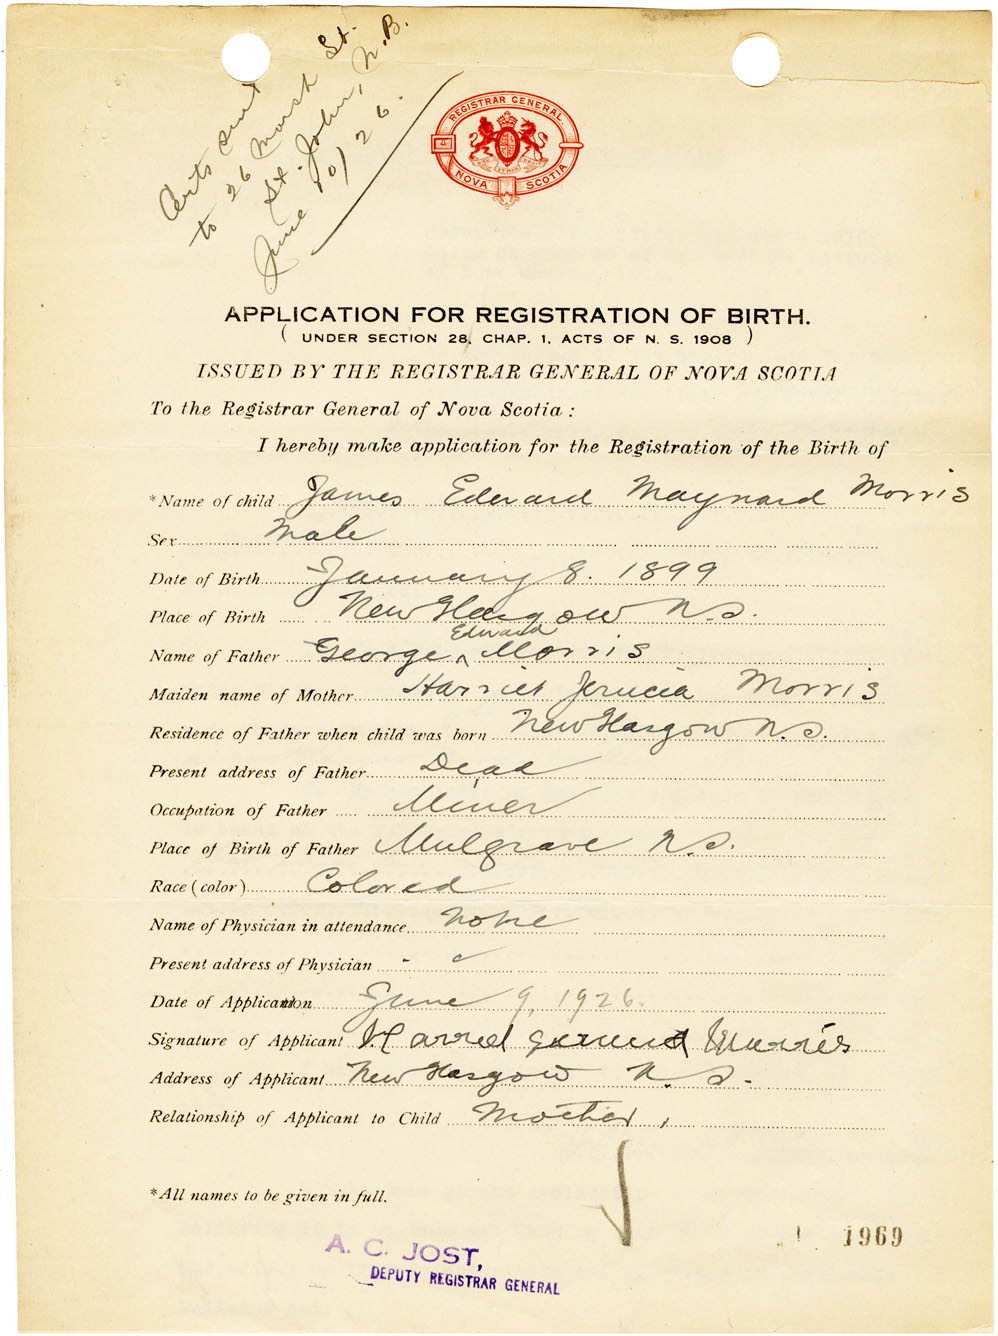 Certs sent
to 26 Marsh St.
St. John, N.B.
June 10/26.
REGISTRAR GENERAL
NOVA SCOTIA
APPLICATION FOR REGISTRATION OF BIRTH.
( UNDER SECTION 28, CHAP. 1, ACTS OF N. S. 1908 )
ISSUED BY THE REGISTRAR GENERAL OF NOVA SCOTIA
To the Registrar General of Nova Scotia :
I hereby make application for the Registration of the Birth of
*Name of child James Edward Maynard Morris
Sex Male
Date of Birth January 8. 1899
Place of Birth New Glasgow N.S.
Name of Father George Edward Morris
Maiden name of Mother Harriet Jerucia Morris
Residence of Father when child was born New Glasgow N.S.
Present address of Father Dead
Occupation of Father Miner
Place of Birth of Father Mulgrave N.S.
Race (color) Colored
Name of Physician in attendance None
Present address of Physician
Date of Application June 9, 1926.
Signature of Applicant Morris
Address of Applicant New Glasgow N.S.
Relationship of Applicant to Child Mother,
*All names to be given in full.
1969
A. C. JOST,
DEPUTY REGISTRAR GENERAL